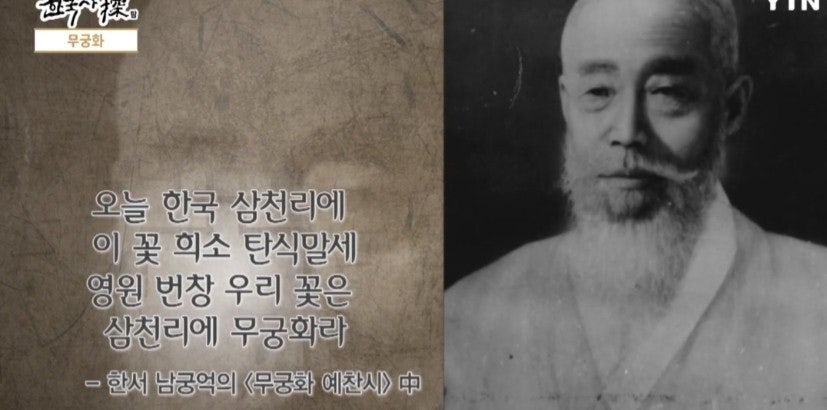 한국사探
무궁화
YTN
오늘 한국 삼천리에
이 꽃 희소 탄식말세
영원 번창 우리 꽃은
삼천리에 무궁화라
- 한서 남궁억의 <무궁화 예찬시> 中